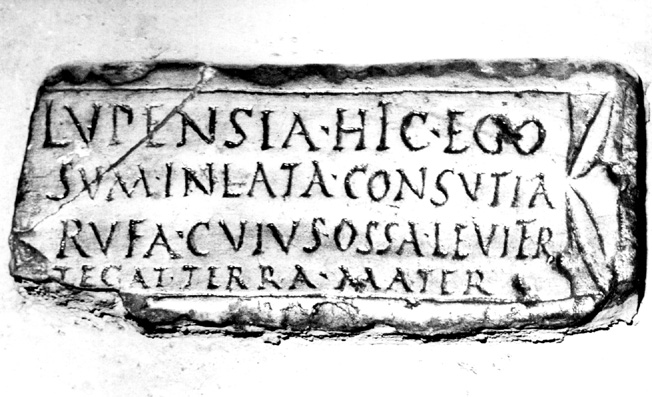 LVPENSIA·HIC·EGO
SVM·INLATA·CONSVTIA
RVFA·CVIVS·OSSA·LEVITER
TEGAT·TERRA·MATER